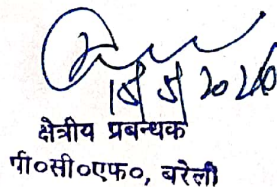 18/5/2026
क्षेत्रीय प्रबन्धक
पी०सी०एफ०, बरेली